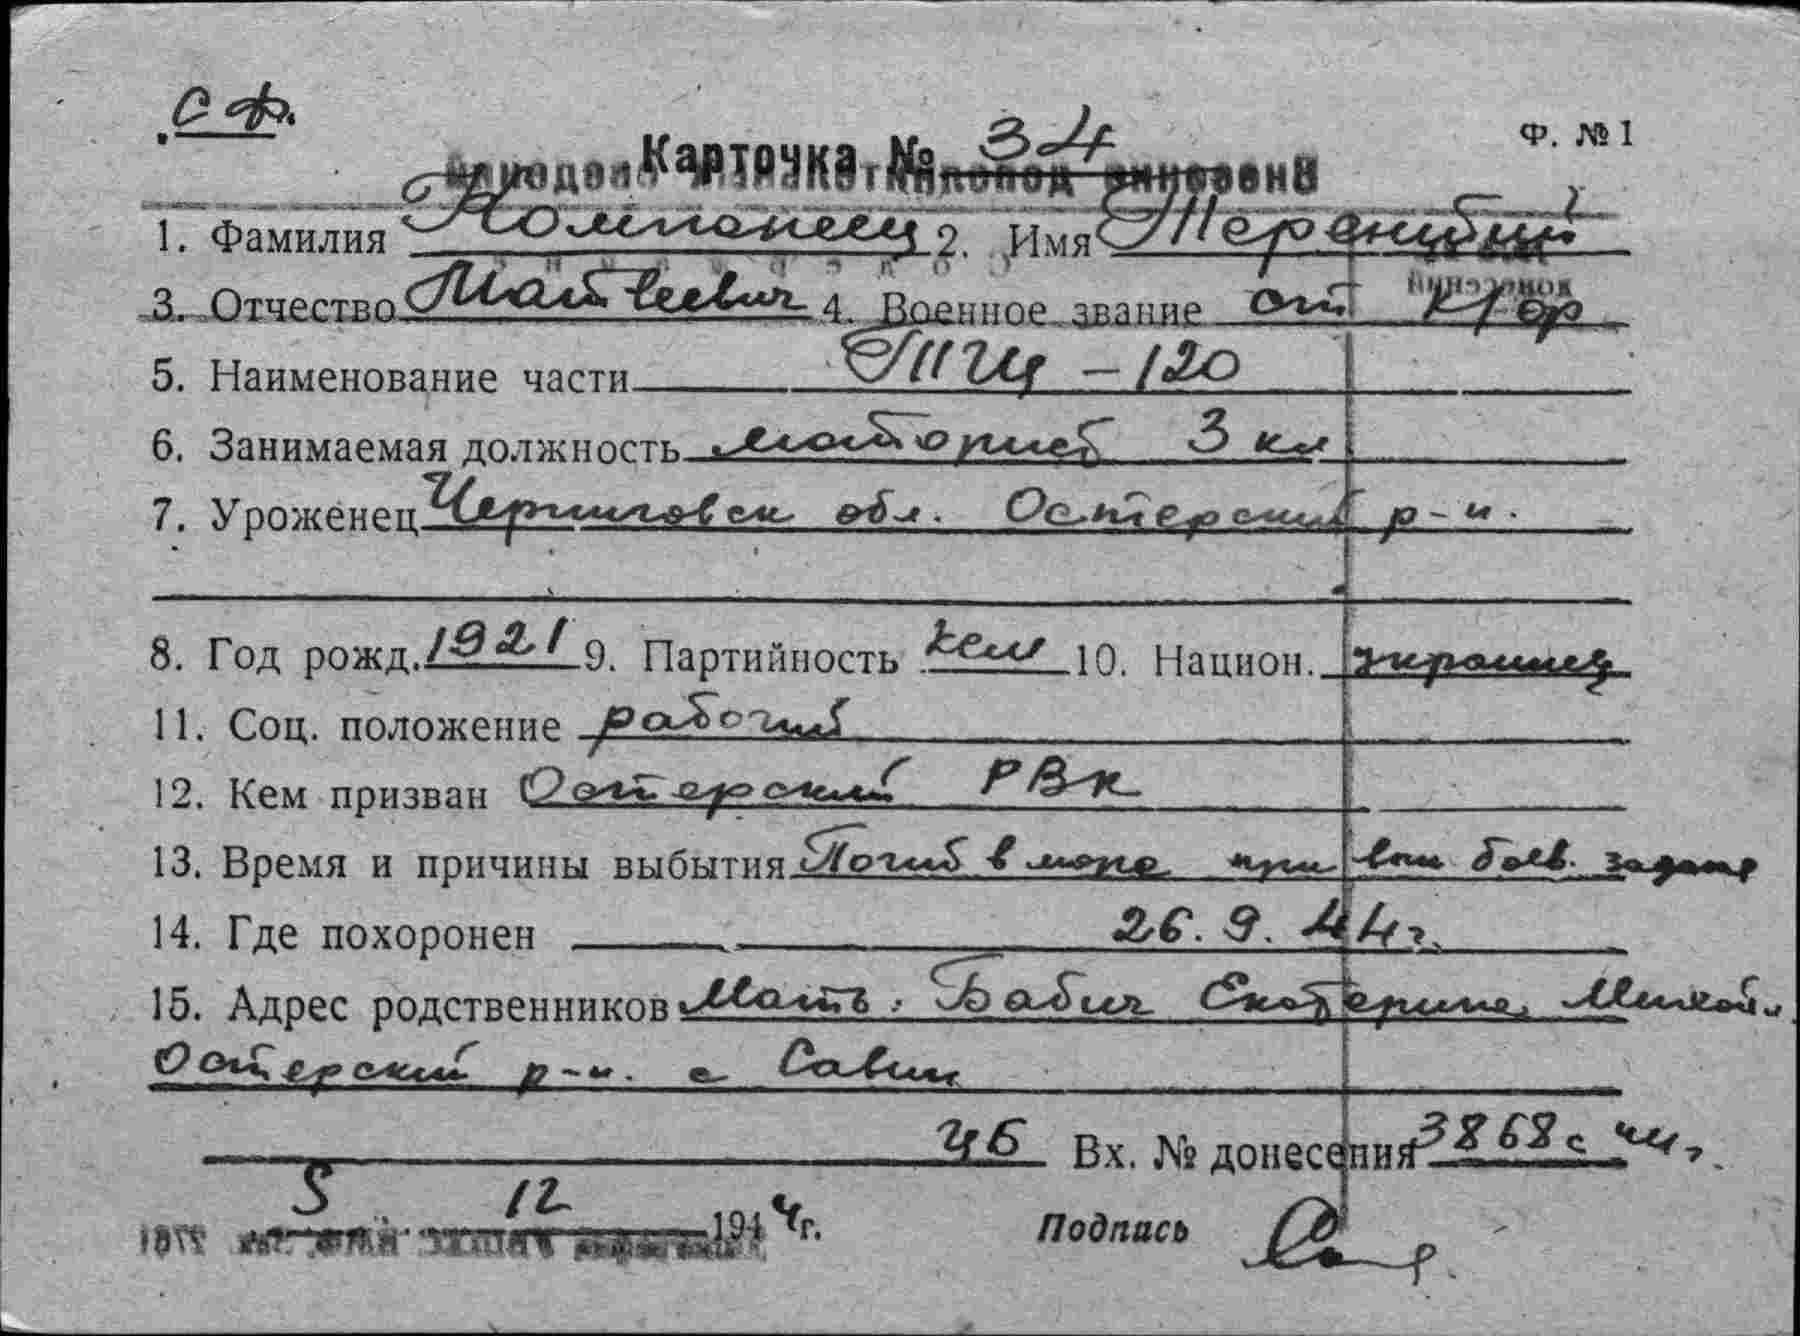 С Ф.
Ф. № 1
Карточка № 34
1. Фамилия Компанеец 2. Имя Терентий
3. Отчество Матвеевич 4. Военное звание ст кр-ор
5. Наименование части ТЩ - 120
6. Занимаемая должность моторист 3 кл
7. Уроженец Черниговск обл. Остерский р-н.
8. Год рожд. 1921 9. Партийность 10. Национ. украинец
11. Соц. положение рабочий
12. Кем призван Остерский РВК
13. Время и причины выбытия Погиб в море при вып боев. задания
14. Где похоронен 26. 9. 44 г.
15. Адрес родственников Мать: Бабич Екатерина
Остерский р-н. с Савин
Вх. № донесения 3868 с 44 г.
5 12 1944 г. Подпись